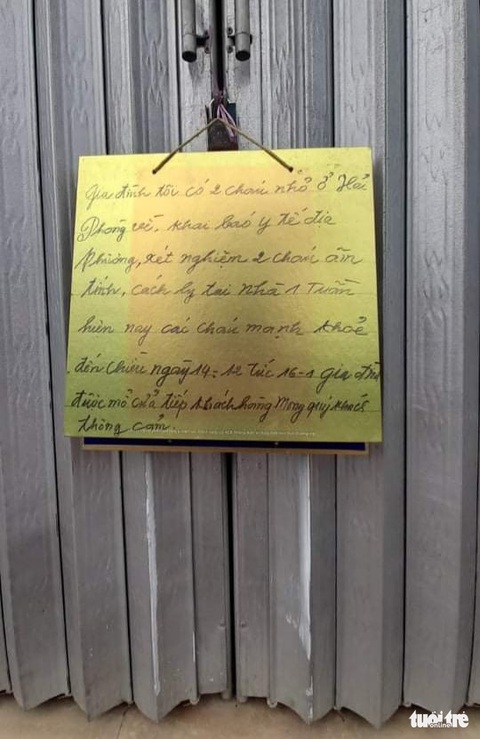 Gia đình tôi có 2 cháu nhỏ ở Hải
Phòng về, khai báo y tế địa
phương, xét nghiệm 2 cháu âm
tính, cách ly tại nhà 1 tuần
hiện nay các cháu mạnh khoẻ
đến chiều ngày 14-12 tức 16-1 gia đình
được mở cửa tiếp khách hàng Mong quý khách
thông cảm.
tuổi trẻ
online